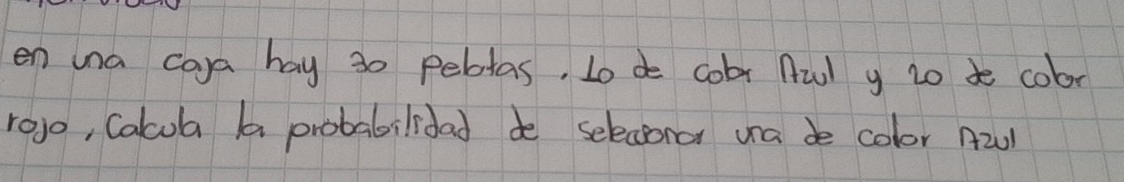 en una caja hay 30 pelotas, 10 de color Azul y 20 de color
rojo, Calcula la probabilidad de seleccionar una de color Azul